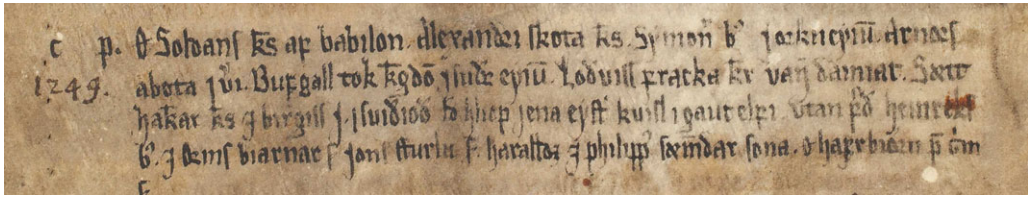 c p. ꝺ Soldans k̅s aꝼ babilon. alexandri skota k̅s. Symon̅ b᷎ j orkneyiu̅. arnoꝛs
1249. abota j vᷓi. Buꝼgall tok k̅gdo̅ j sudꝛ eyiu̅. Lodviss ꝼracka k̅r van̅ damiat. Sætt
hak̅ar k̅s ⁊ birgiss j. j suiðioð k̅o skiep j ena eyſtͬ kuiſl i gaut elꝼi. vtan ꝼ̅d heinreks
b᷎. ⁊ oꝛms biarnar ſ. jons ſturlu ſ. harallꝺz ⁊ philipp᷎ ſæm̅dar ſona. ꝺ haꝼrbioꝛn p̅
ſ.